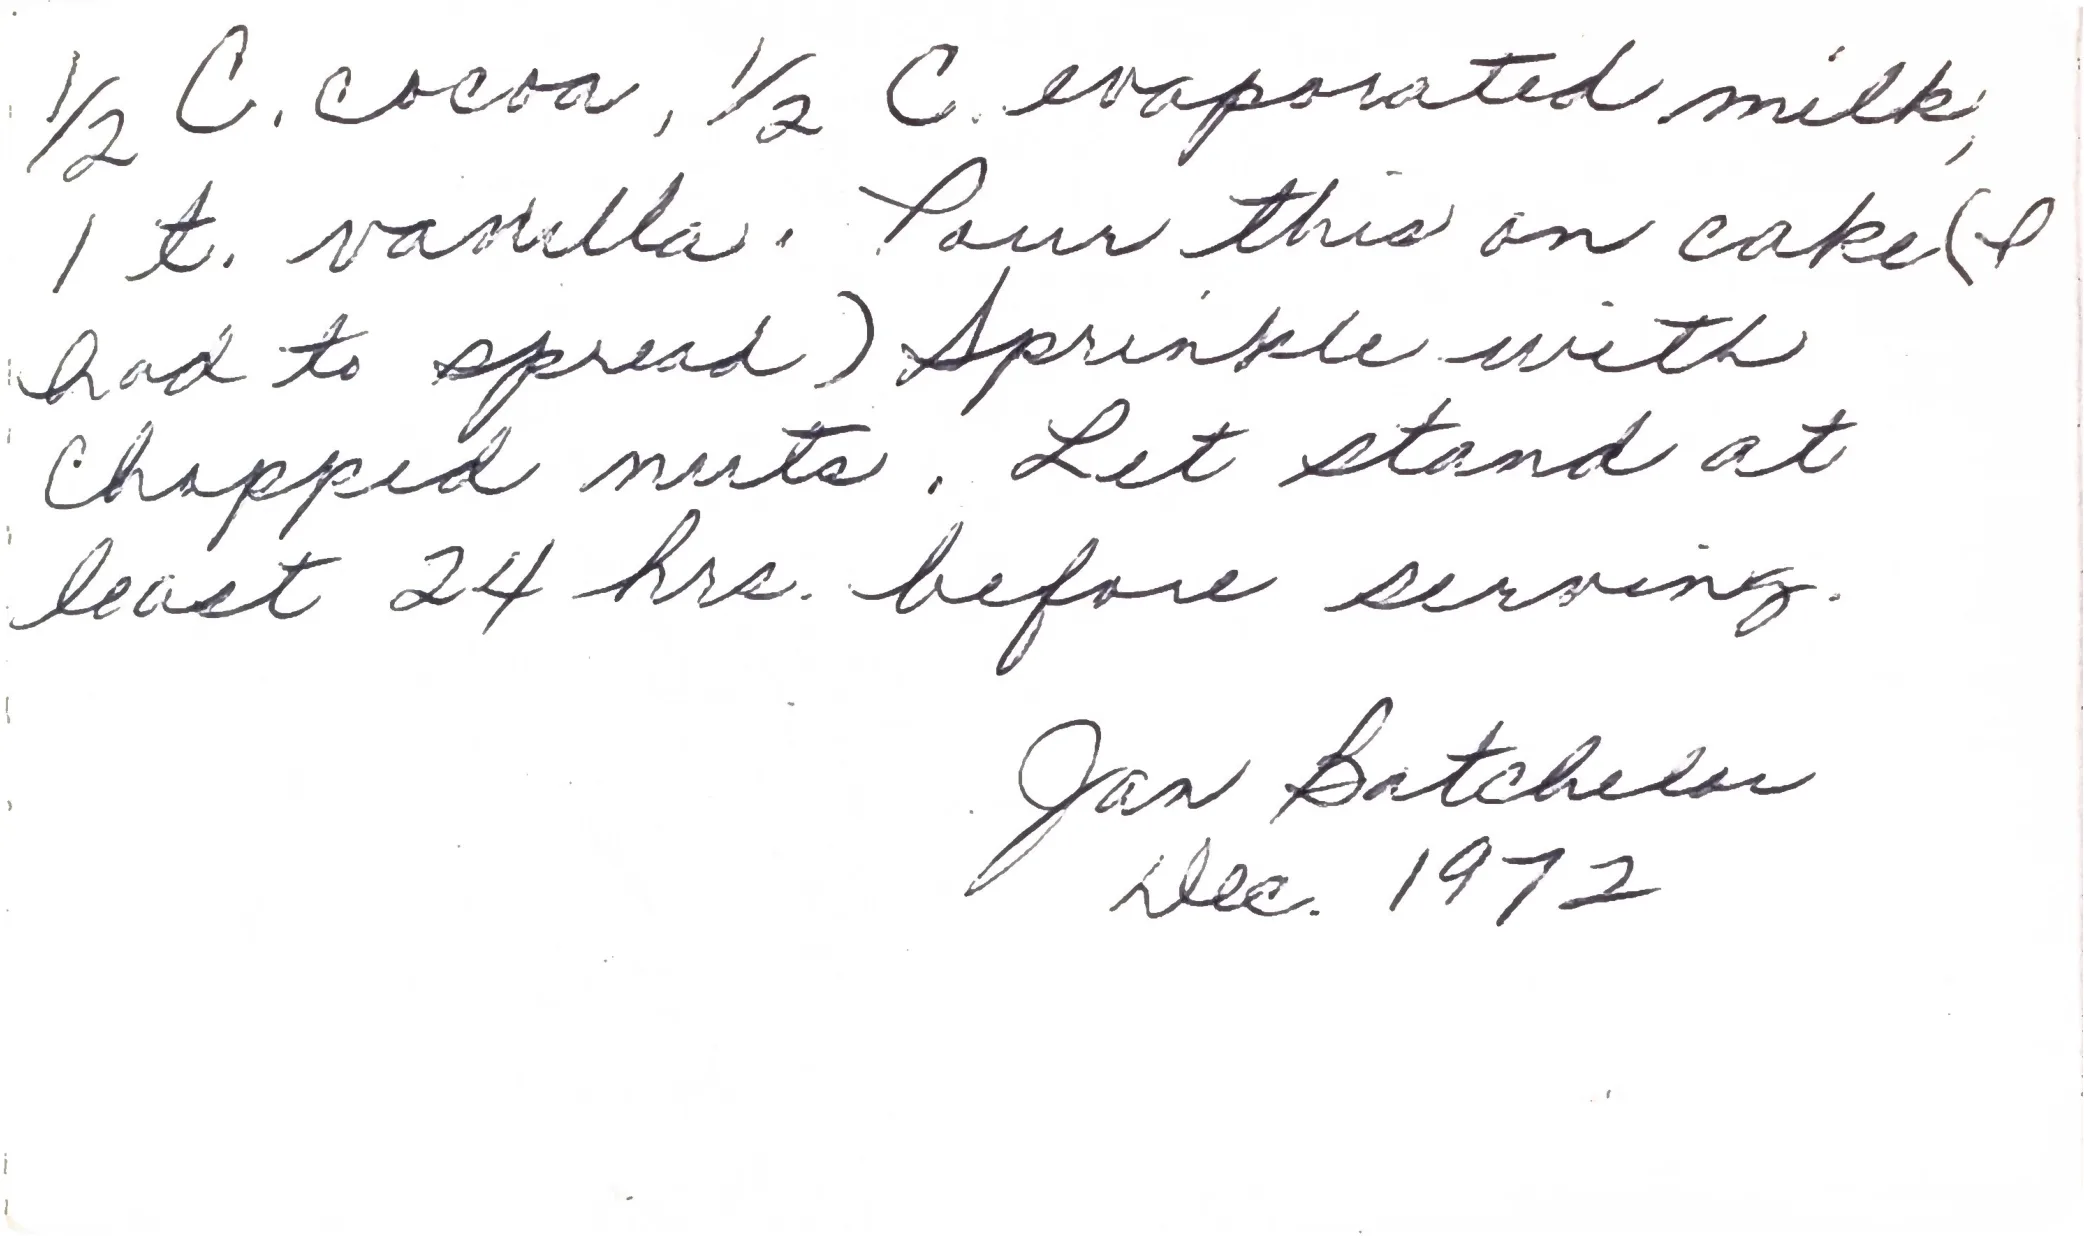 1/2 C. cocoa, 1/2 C. evaporated milk,
1 t. vanilla. Pour this on cake (I
had to spread) Sprinkle with
chopped nuts. Let stand at
least 24 hrs. before serving.
Jan Batchelor
Dec. 1972